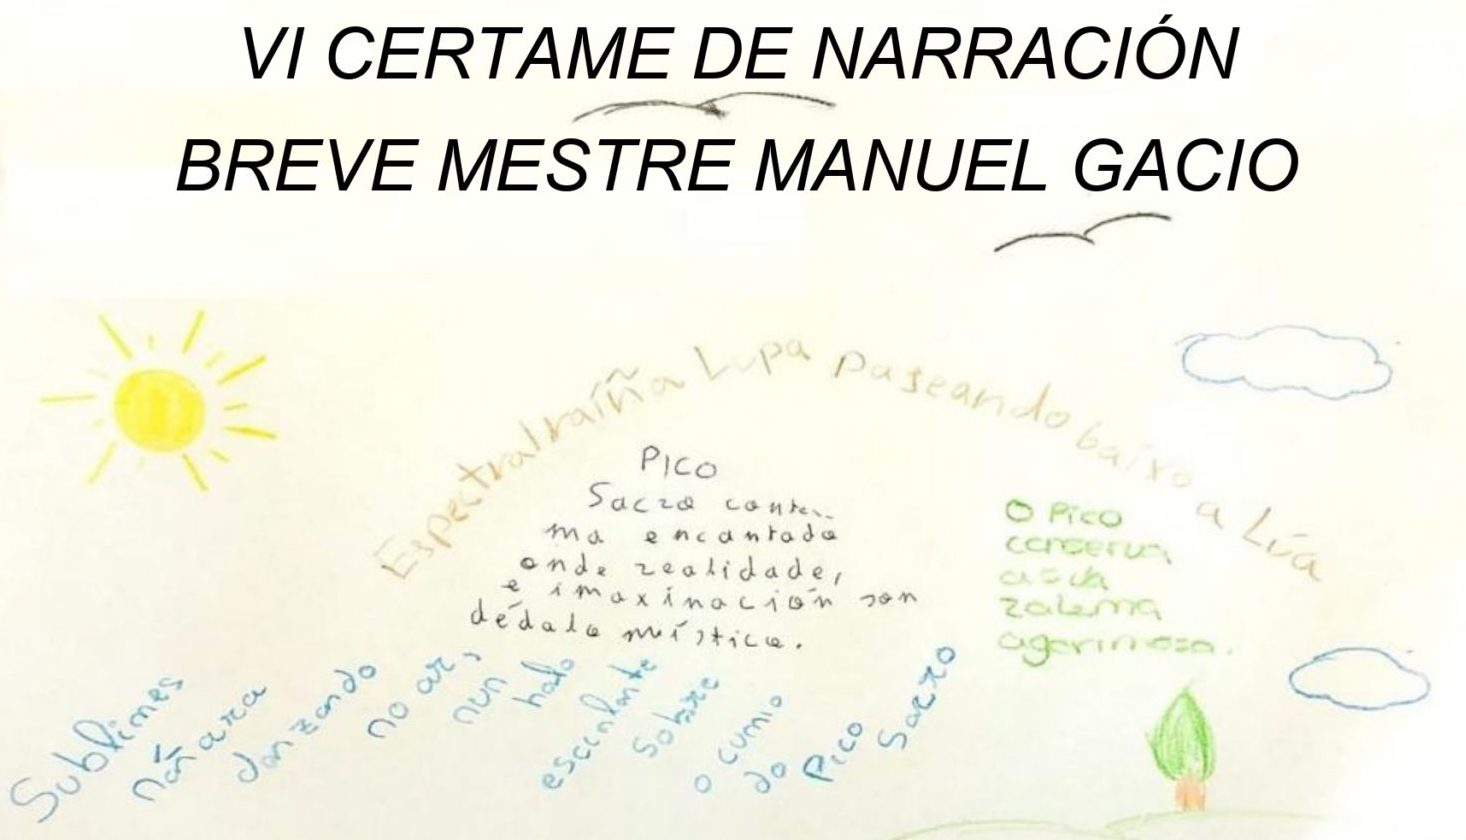 VI CERTAME DE NARRACIÓN
BREVE MESTRE MANUEL GACIO
Espectral raíña Lupa paseando baixo a Lúa
PICO
Sacro contem
ma encantada
onde realidade,
e imaxinación son
dédalo místico.
O Pico
conserva
a súa
zalema
agarimosa.
Sublimes
danzando
no ar,
nun
halo
escintilante
sobre
o cumio
do
Pico
Sacro